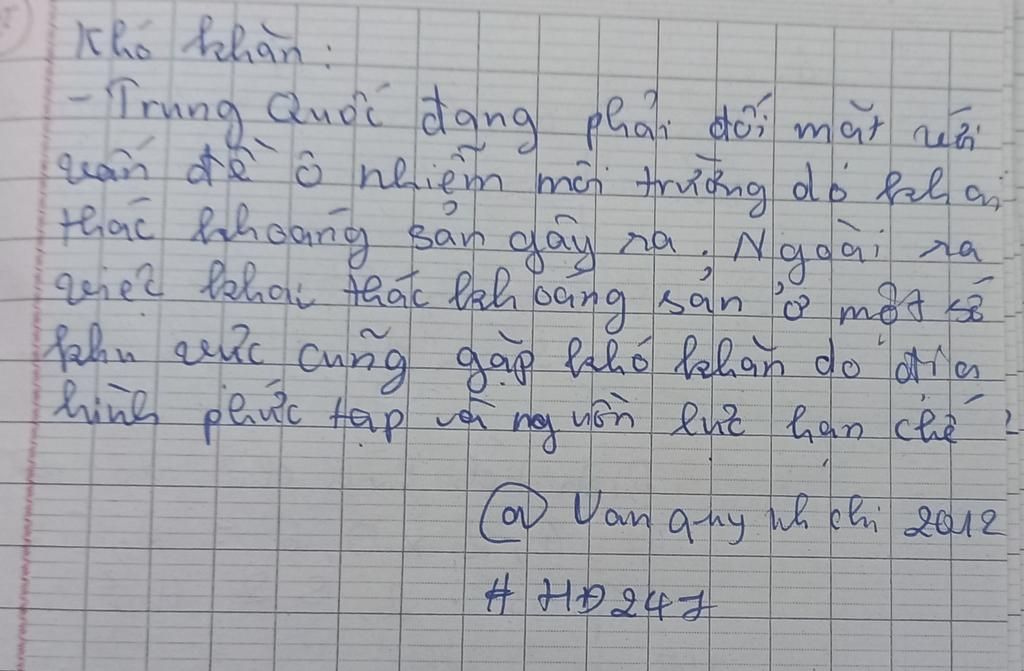 Khó khăn:
- Trung Quốc đang phải đối mặt với
vấn đề ô nhiễm môi trường do khai
thác khoáng sản gây ra. Ngoài ra
việc khai thác khoáng sản ở một số
khu vực cũng gặp khó khăn do địa
hình phức tạp và nguồn lực hạn chế
@ Van quy nh chi 2012
# HD247